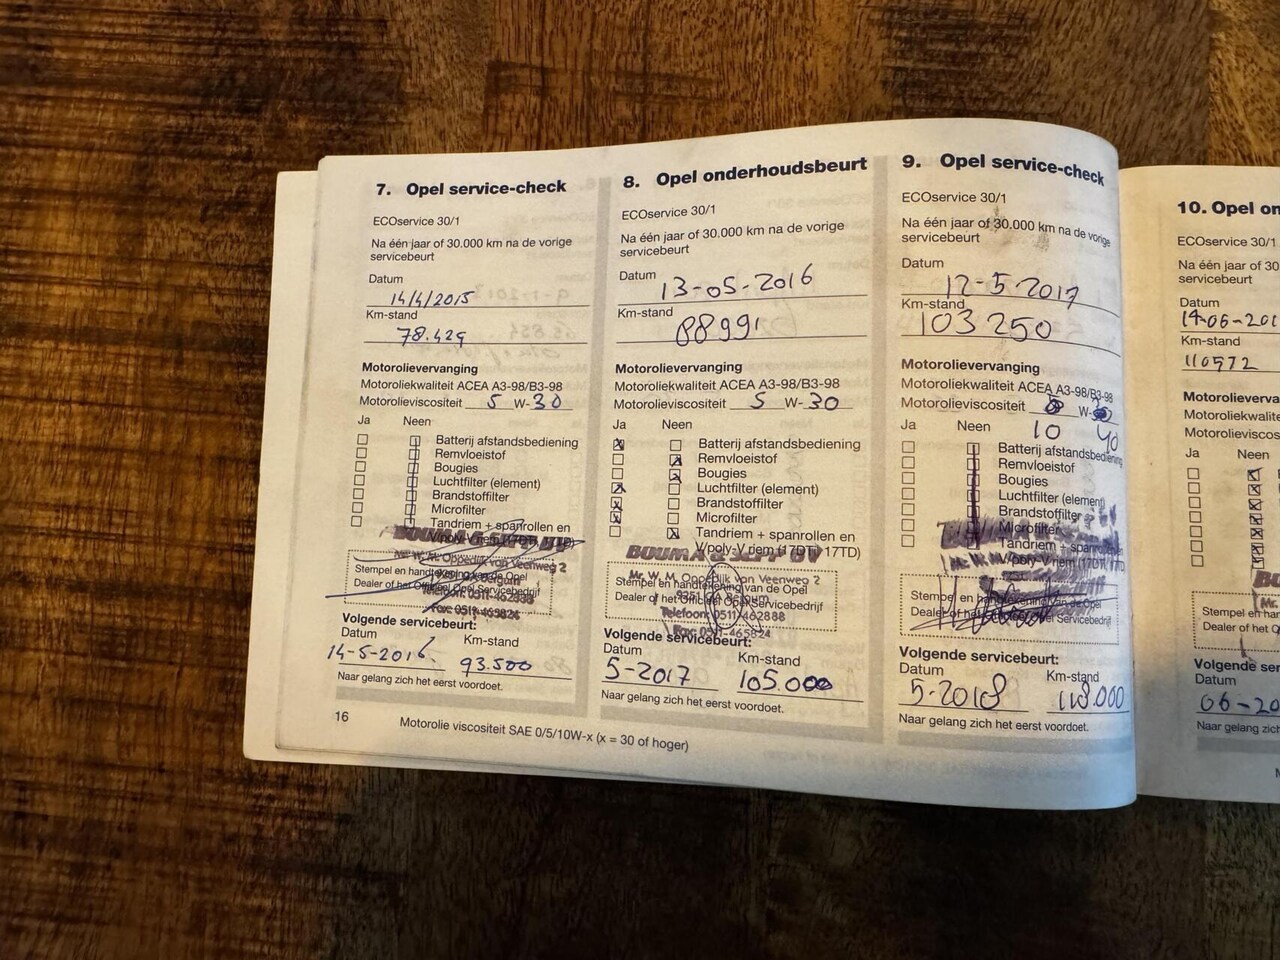 7. Opel service-check
ECOservice 30/1
Na één jaar of 30.000 km na de vorige
servicebeurt
Datum
14/4/2015
Km-stand
78.429
Motorolievervanging
Motoroliekwaliteit ACEA A3-98/B3-98
Motorolieviscositeit 5 W-30
Ja Neen
Batterij afstandsbediening
Remvloeistof
Bougies
Luchtfilter (element)
Brandstoffilter
Microfilter
Tandriem + spanrollen en
V/poly-V riem (17DTI, 17TD)
Mr. W. M. Oppedijk van Veenweg 2
Stempel en handtekening van de Opel
Dealer of het Officieel Opel Servicebedrijf
Telefoon: 0511-462888
Fax: 0511-465824
Volgende servicebeurt:
Datum Km-stand
14-5-2016. 93.500
Naar gelang zich het eerst voordoet.
16
Motorolie viscositeit SAE 0/5/10W-x (x = 30 of hoger)
8. Opel onderhoudsbeurt
ECOservice 30/1
Na één jaar of 30.000 km na de vorige
servicebeurt
Datum
13-05-2016
Km-stand
88991
Motorolievervanging
Motoroliekwaliteit ACEA A3-98/B3-98
Motorolieviscositeit 5 W-30
Ja Neen
Batterij afstandsbediening
Remvloeistof
Bougies
Luchtfilter (element)
Brandstoffilter
Microfilter
Tandriem + spanrollen en
V/poly-V riem (17DTI, 17TD)
BOUMA
BV
Mr. W. M. Oppedijk van Veenweg 2
Stempel en handtekening van de Opel
9251 GA Bergum
Dealer of het Officieel Opel Servicebedrijf
Telefoon: 0511-462888
Fax: 0511-465824
Volgende servicebeurt:
Datum Km-stand
5-2017 105.000
Naar gelang zich het eerst voordoet.
9. Opel service-check
ECOservice 30/1
Na één jaar of 30.000 km na de vorige
servicebeurt
Datum
12-5-2017
Km-stand
103250
Motorolievervanging
Motoroliekwaliteit ACEA A3-98/B3-98
Motorolieviscositeit W-
10 40
Ja Neen
Batterij afstandsbediening
Remvloeistof
Bougies
Luchtfilter (element)
Brandstoffilter
Microfilter
Tandriem + spanrollen
V/poly-V riem (17DTI, 17TD
Stempel en handtekening van de Opel
Dealer of het Officieel Opel Servicebedrijf
Volgende servicebeurt:
Datum Km-stand
5-2018 118.000
Naar gelang zich het eerst voordoet.
10. Opel on
ECOservice 30/1
Na één jaar of 30
servicebeurt
Datum
14-06-201
Km-stand
110572
Motorolieverva
Motoroliekwalite
Motorolieviscos
Ja Neen
Stempel en har
Dealer of het O
Volgende ser
Datum
06-20
Naar gelang zich